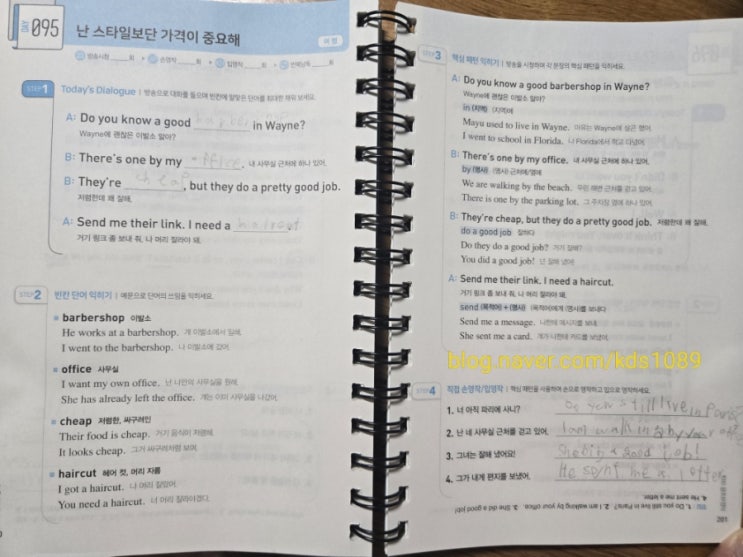 095
난 스타일보단 가격이 중요해
방송시청 ___회 ▸ 손영작 ___회 ▸ 입영작 ___회 ▸ 반복낭독 ___회
STEP1 Today's Dialogue | 방송으로 대화를 들으며 빈칸에 알맞은 단어를 최대한 채워 보세요.
A: Do you know a good barbershop in Wayne?
Wayne에 괜찮은 이발소 알아?
B: There's one by my office. 내 사무실 근처에 하나 있어.
B: They're cheap, but they do a pretty good job.
저렴한데 꽤 잘해.
A: Send me their link. I need a haircut
거기 링크 좀 보내 줘. 나 머리 잘라야 돼.
STEP2 빈칸 단어 익히기 | 예문으로 단어의 쓰임을 익히세요.
barbershop 이발소
He works at a barbershop. 걔 이발소에서 일해.
I went to the barbershop. 나 이발소에 갔어.
office 사무실
I want my own office. 난 나만의 사무실을 원해.
She has already left the office. 걔는 이미 사무실을 나갔어.
cheap 저렴한, 싸구려인
Their food is cheap. 거기 음식이 저렴해.
It looks cheap. 그거 싸구려처럼 보여.
haircut 헤어 컷, 머리 자름
I got a haircut. 나 머리 잘랐어.
You need a haircut. 너 머리 잘라야겠다.
STEP3 핵심 패턴 익히기 | 방송을 시청하며 각 문장의 핵심 패턴을 익히세요.
A: Do you know a good barbershop in Wayne?
Wayne에 괜찮은 이발소 알아?
in (지역) (지역)에
Mayu used to live in Wayne. 마유는 Wayne에 살곤 했어.
I went to school in Florida. 나 Florida에서 학교 다녔어.
B: There's one by my office. 내 사무실 근처에 하나 있어.
by (명사) (명사) 근처에/옆에
We are walking by the beach. 우린 해변 근처를 걷고 있어.
There is one by the parking lot. 그 주차장 옆에 하나 있어.
B: They're cheap, but they do a pretty good job. 저렴한데 꽤 잘해.
do a good job 잘하다
Do they do a good job? 거기 잘해?
You did a good job! 넌 잘해 냈어!
A: Send me their link. I need a haircut.
거기 링크 좀 보내 줘. 나 머리 잘라야 돼.
send (목적어) + (명사) (목적어)에게 (명사)를 보내다
Send me a message. 나한테 메시지를 보내.
She sent me a card. 걔가 나한테 카드를 보냈어.
blog.naver.com/kds1089
STEP4 직접 손영작/입영작 | 핵심 패턴을 사용하여 손으로 영작하고 입으로 영작하세요.
1. 너 아직 파리에 사니? Do you still live in Paris
2. 난 네 사무실 근처를 걷고 있어. I am walking by your office
3. 그녀는 잘해 냈어요! She did a good job!
4. 그가 내게 편지를 보냈어. He sent me a letter
1. Do you still live in Paris? 2. I am walking by your office. 3. She did a good job!
4. He sent me a letter.
201